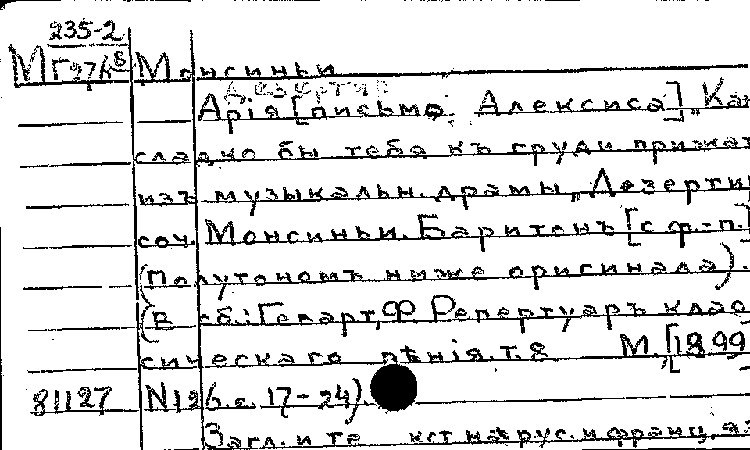 235-2
М Г276 в Монсиньи
Дезертир
Арія [письмо Алексиса] „Как
сладко бы тебя къ груди прижат
изъ музыкальн. драмы „Дезерти
соч. Монсиньи. Баритонъ [с ф.-п.]
(Полутономъ ниже оригинала).
(В сб.: Геварт, Ф. Репертуаръ клас
сическаго пѣнія. т. 8 М. [1899
81127 N126. с. 17-24).
Загл. и те кст на рус. и франц. яз